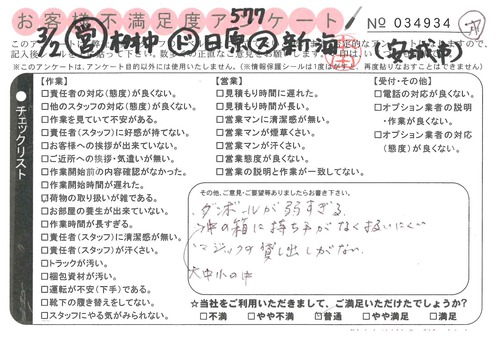 お客様不満足度アンケート
577
No 034934
3/2 営 村仲 ド 日原 ス 新海 (安城市)
※このアンケートは、アンケート目的以外には使用いたしません。(※情報保護シールは1度はがすと、再度貼りなおすことはできません)
チェックリスト
【作業】
□責任者の対応(態度)が良くない。
□他のスタッフの対応(態度)が良くない。
□作業を見ていて不安がある。
□責任者(スタッフ)に好感が持てない。
□お客様への挨拶が出来ていない。
□ご近所への挨拶・気遣いが無い。
□作業開始前の内容確認がなかった。
□作業開始時間が遅れた。
□荷物の取り扱いが雑である。
□お部屋の養生が出来ていない。
□作業時間が長すぎる。
□責任者(スタッフ)に清潔感が無い。
□責任者(スタッフ)が汗くさい。
□トラックが汚い。
□梱包資材が汚い。
□運転が不安(下手)である。
□靴下の履き替えをしてない。
□スタッフにやる気がみられない。
【営業】
□見積もり時間に遅れた。
□見積もり時間が長い。
□営業マンに清潔感が無い。
□営業マンが煙草くさい。
□営業マンが汗くさい。
□営業態度が良くない。
□営業の説明と作業が一致してない。
【受付・その他】
□電話の対応が良くない。
□オプション業者の説明
・作業が良くない。
□オプション業者の対応
(態度)が良くない。
その他、ご意見・ご要望等ありましたらお書き下さい。
・ダンボールが弱すぎる
・中の箱に持ち手がなく持いにくい
・マジックの貸し出しがない
大中小の中
☆当社をご利用いただきまして、ご満足いただけたでしょうか?
□不満 □やや不満 □普通 □やや満足 □満足